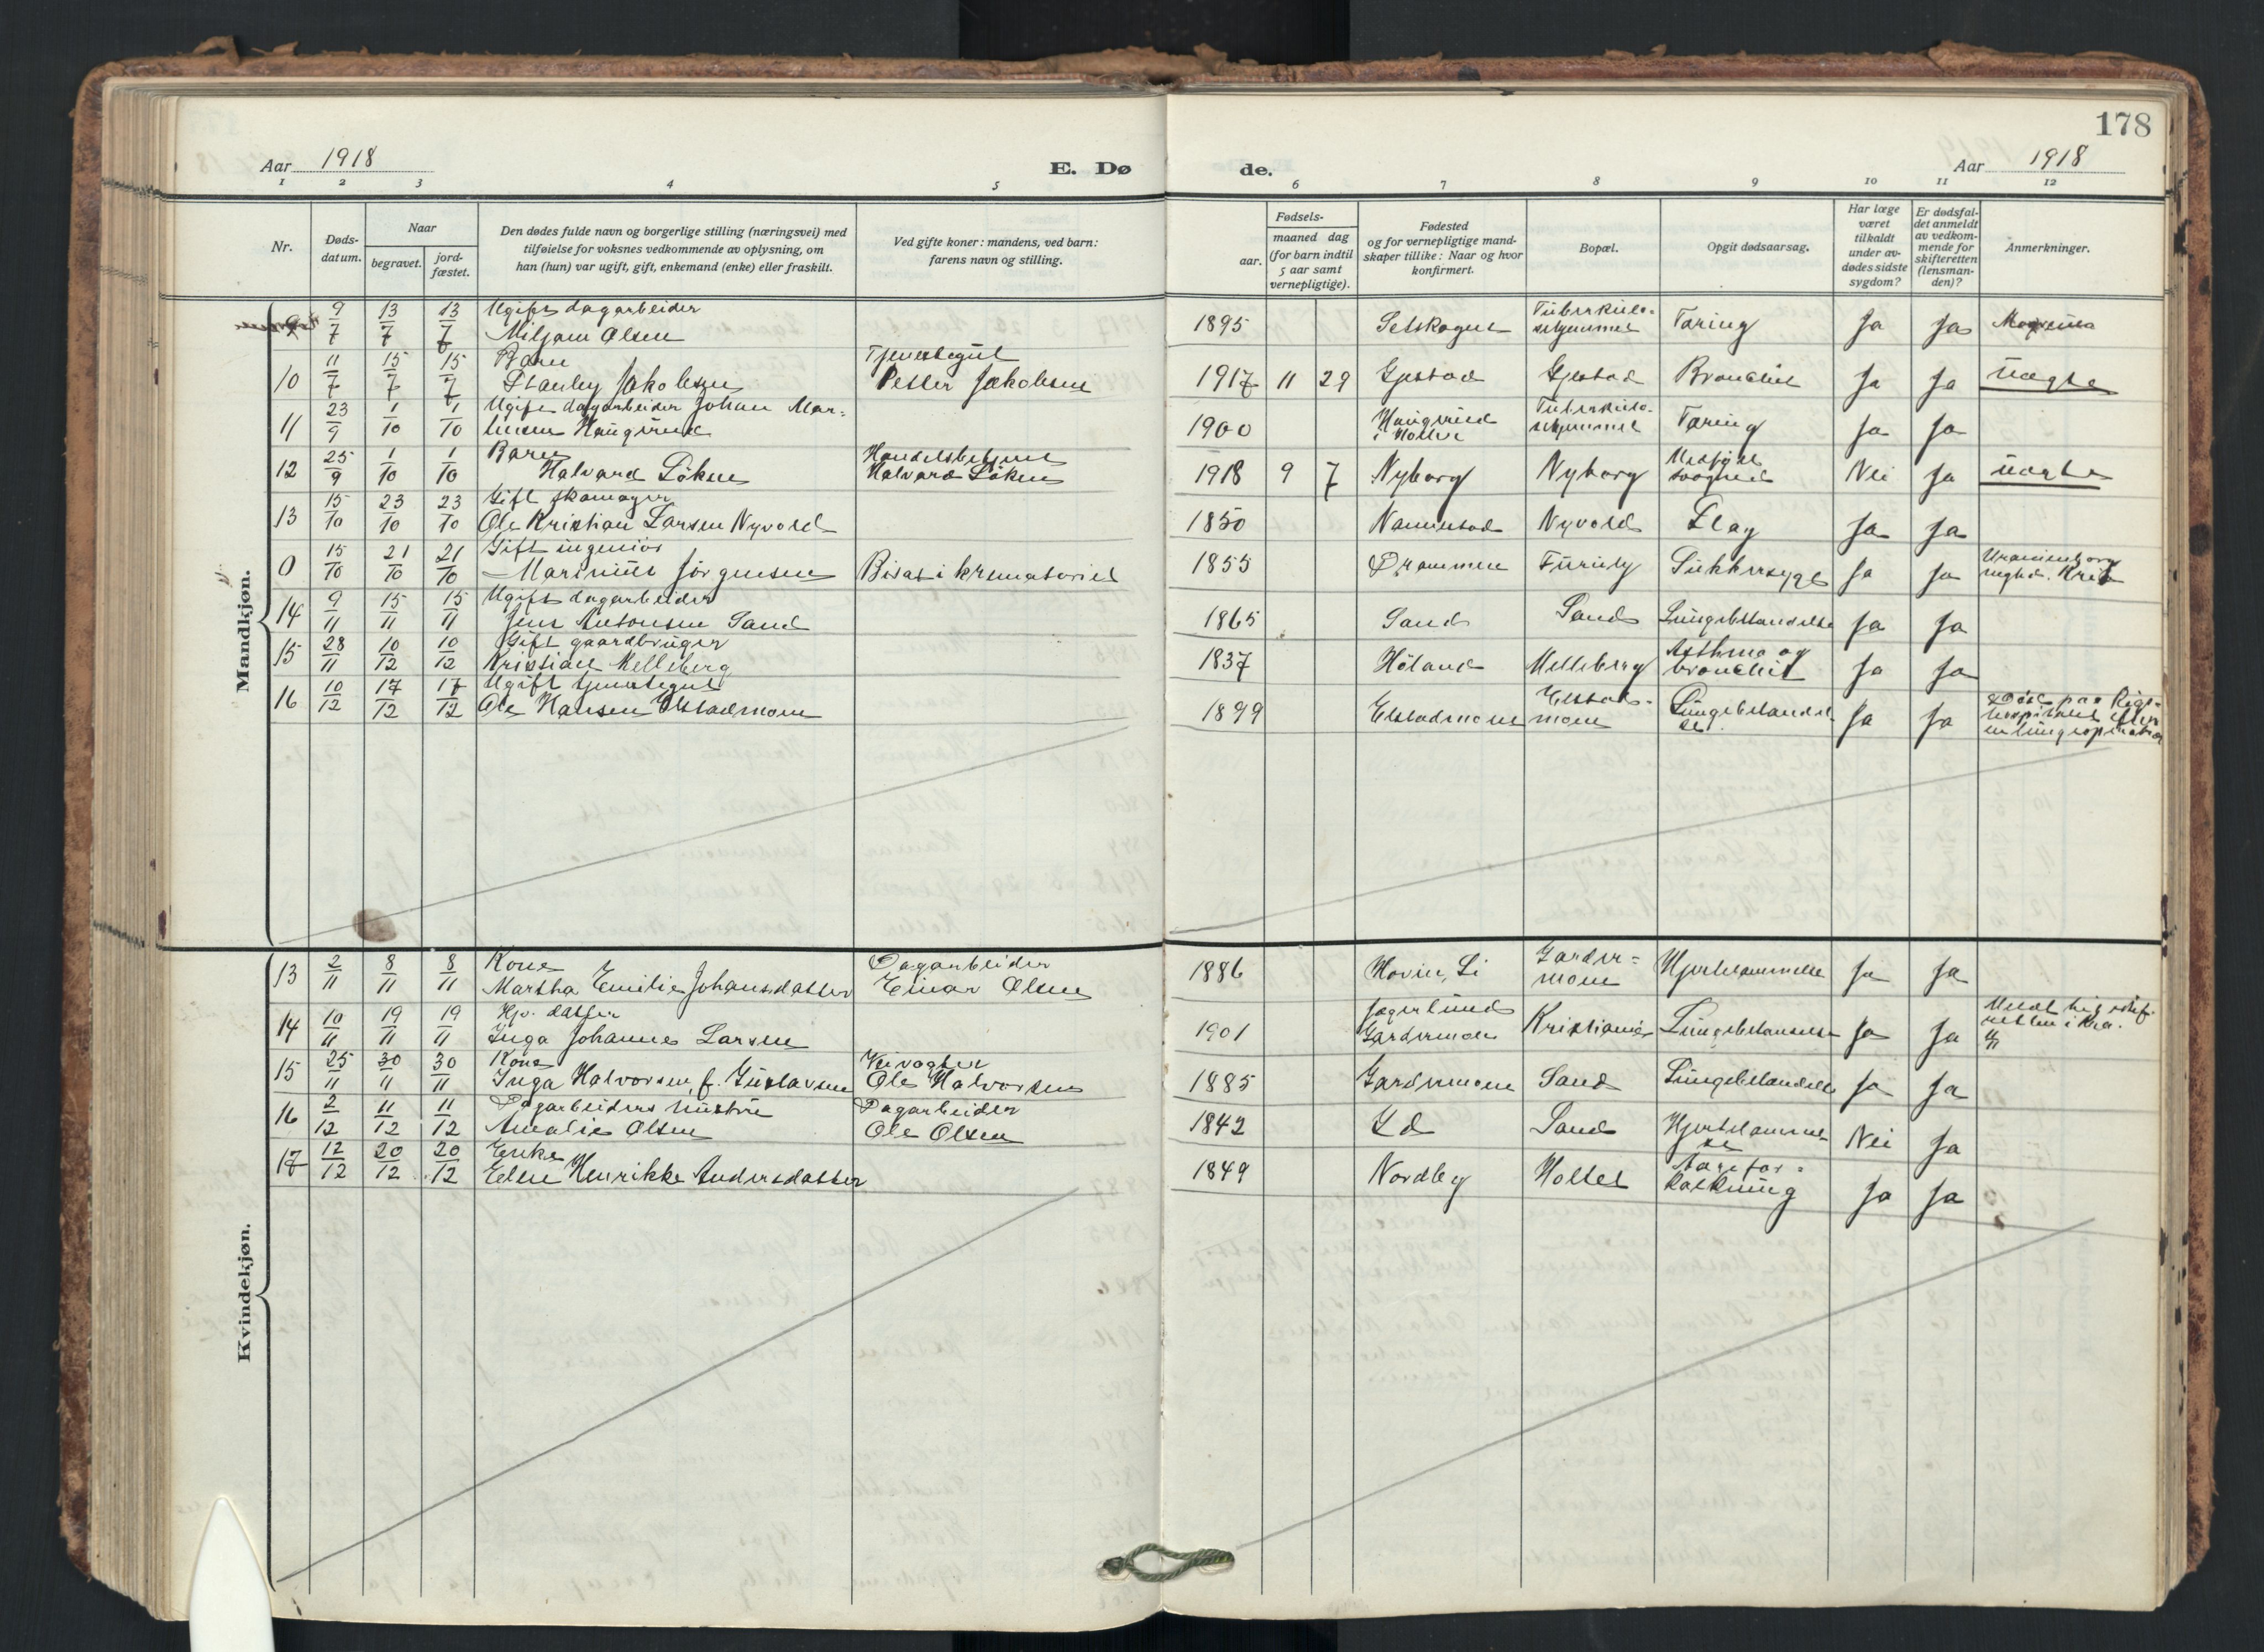 178
Aar 1918
E. Dø
de.
Aar 1918
1 2 3 4 5 6 7 8 9 10 11 12
Nr.
Døds-
datum.
Naar
begravet.
jord-
fæstet.
Den dødes fulde navn og borgerlige stilling (næringsvei) med
tilføielse for voksnes vedkommende av oplysning, om
han (hun) var ugift, gift, enkemand (enke) eller fraskilt.
Ved gifte koner: mandens, ved barn:
farens navn og stilling.
Fødsels-
aar.
maaned dag
(for barn indtil
5 aar samt
vernepligtige).
Fødested
og for vernepligtige mand-
skaper tillike: Naar og hvor
konfirmert.
Bopæl.
Opgit dødsaarsag.
Har læge
været
tilkaldt
under av-
dødes sidste
sygdom?
Er dødsfal-
det anmeldt
av vedkom-
mende for
skifteretten
(lensman-
den)?
Anmerkninger.
Mandkjøn.
9/7 13/7 13/7 Ugift dagarbeider
Miljam Olsen
1895 Setskogen Tuberkulo-
sehjemmet Tæring Ja Ja
10 11/7 15/7 15/7 Barn
Stanley Jakobsen
Tjenestegut
Petter Jakobsen
1917 11 29 Gjestad Gjestad Bronchit Ja Ja Uægte
11 23/9 1/10 1/10 Ugift dagarbeider Johan Mar-
tinsen Haugrud
1900 Haugrud
i Holter Tuberkulo-
sehjemmet Tæring Ja Ja
12 25/9 1/10 1/10 Barn
Halvard Löken
Handelsbetjent
Halvard Löken
1918 9 7 Nyborg Nyborg Medfødt
svaghed Nei Ja Uægte
13 15/10 23/10 23/10 Gift skomager
Ole Kristian Larsen Nyvold
1850 Nannestad Nyvold Slag Ja Ja
0 15/10 21/10 21/10 Gift ingeniör
Marinius Jörgensen Bisat i krematoriet
1855 Drammen Furuly Sukkersyge Ja Ja Uranienborg
meghd. Kria
14 9/11 15/11 15/11 Ugift dagarbeider
Jens Antonsen Sand
1865 Sand Sand Lungebetændelse Ja Ja
15 28/11 10/12 10/12 Gift gaardbruger
Kristian Melleberg
1837 Höland Melleberg Asthma og
bronchit Ja Ja
16 10/12 17/12 17/12 Ugift tjenestegut
Ole Hansen Elstadmoen
1899 Elstadmoen Elstad-
moen Lungebetændel
se. Ja Ja Död paa Rigs-
hospitalet efter
en lungeoperation
Kvindekjøn.
13 2/11 8/11 8/11 Kone
Martha Emilie Johansdatter
Dagarbeider
Einar Olsen
1886 Hovin, Li Garder-
moen Hjertelammelse Ja Ja
14 10/11 19/11 19/11 Hjv. datter
Inga Johanne Larsen
1901 Jægerlund
Gardermoen Kristiania Lungebetændelse Ja Ja Meldt til skif-
retten i Kra.
15 25/11 30/11 30/11 Kone
Inga Halvorsen, f. Gustavsen
Veivogter
Ole Halvorsen
1885 Gardermoen Sand Lungebetændelse Ja Ja
16 2/12 11/12 11/12 Dagarbeiders hustru
Amalie Olsen
Dagarbeider
Ole Olsen
1842 Id Sand Hjertelammel-
se Nei Ja
17 12/12 20/12 20/12 Enke
Elen Henrikke Andersdatter
1849 Nordby Holter Aarefor-
kalkning Ja Ja